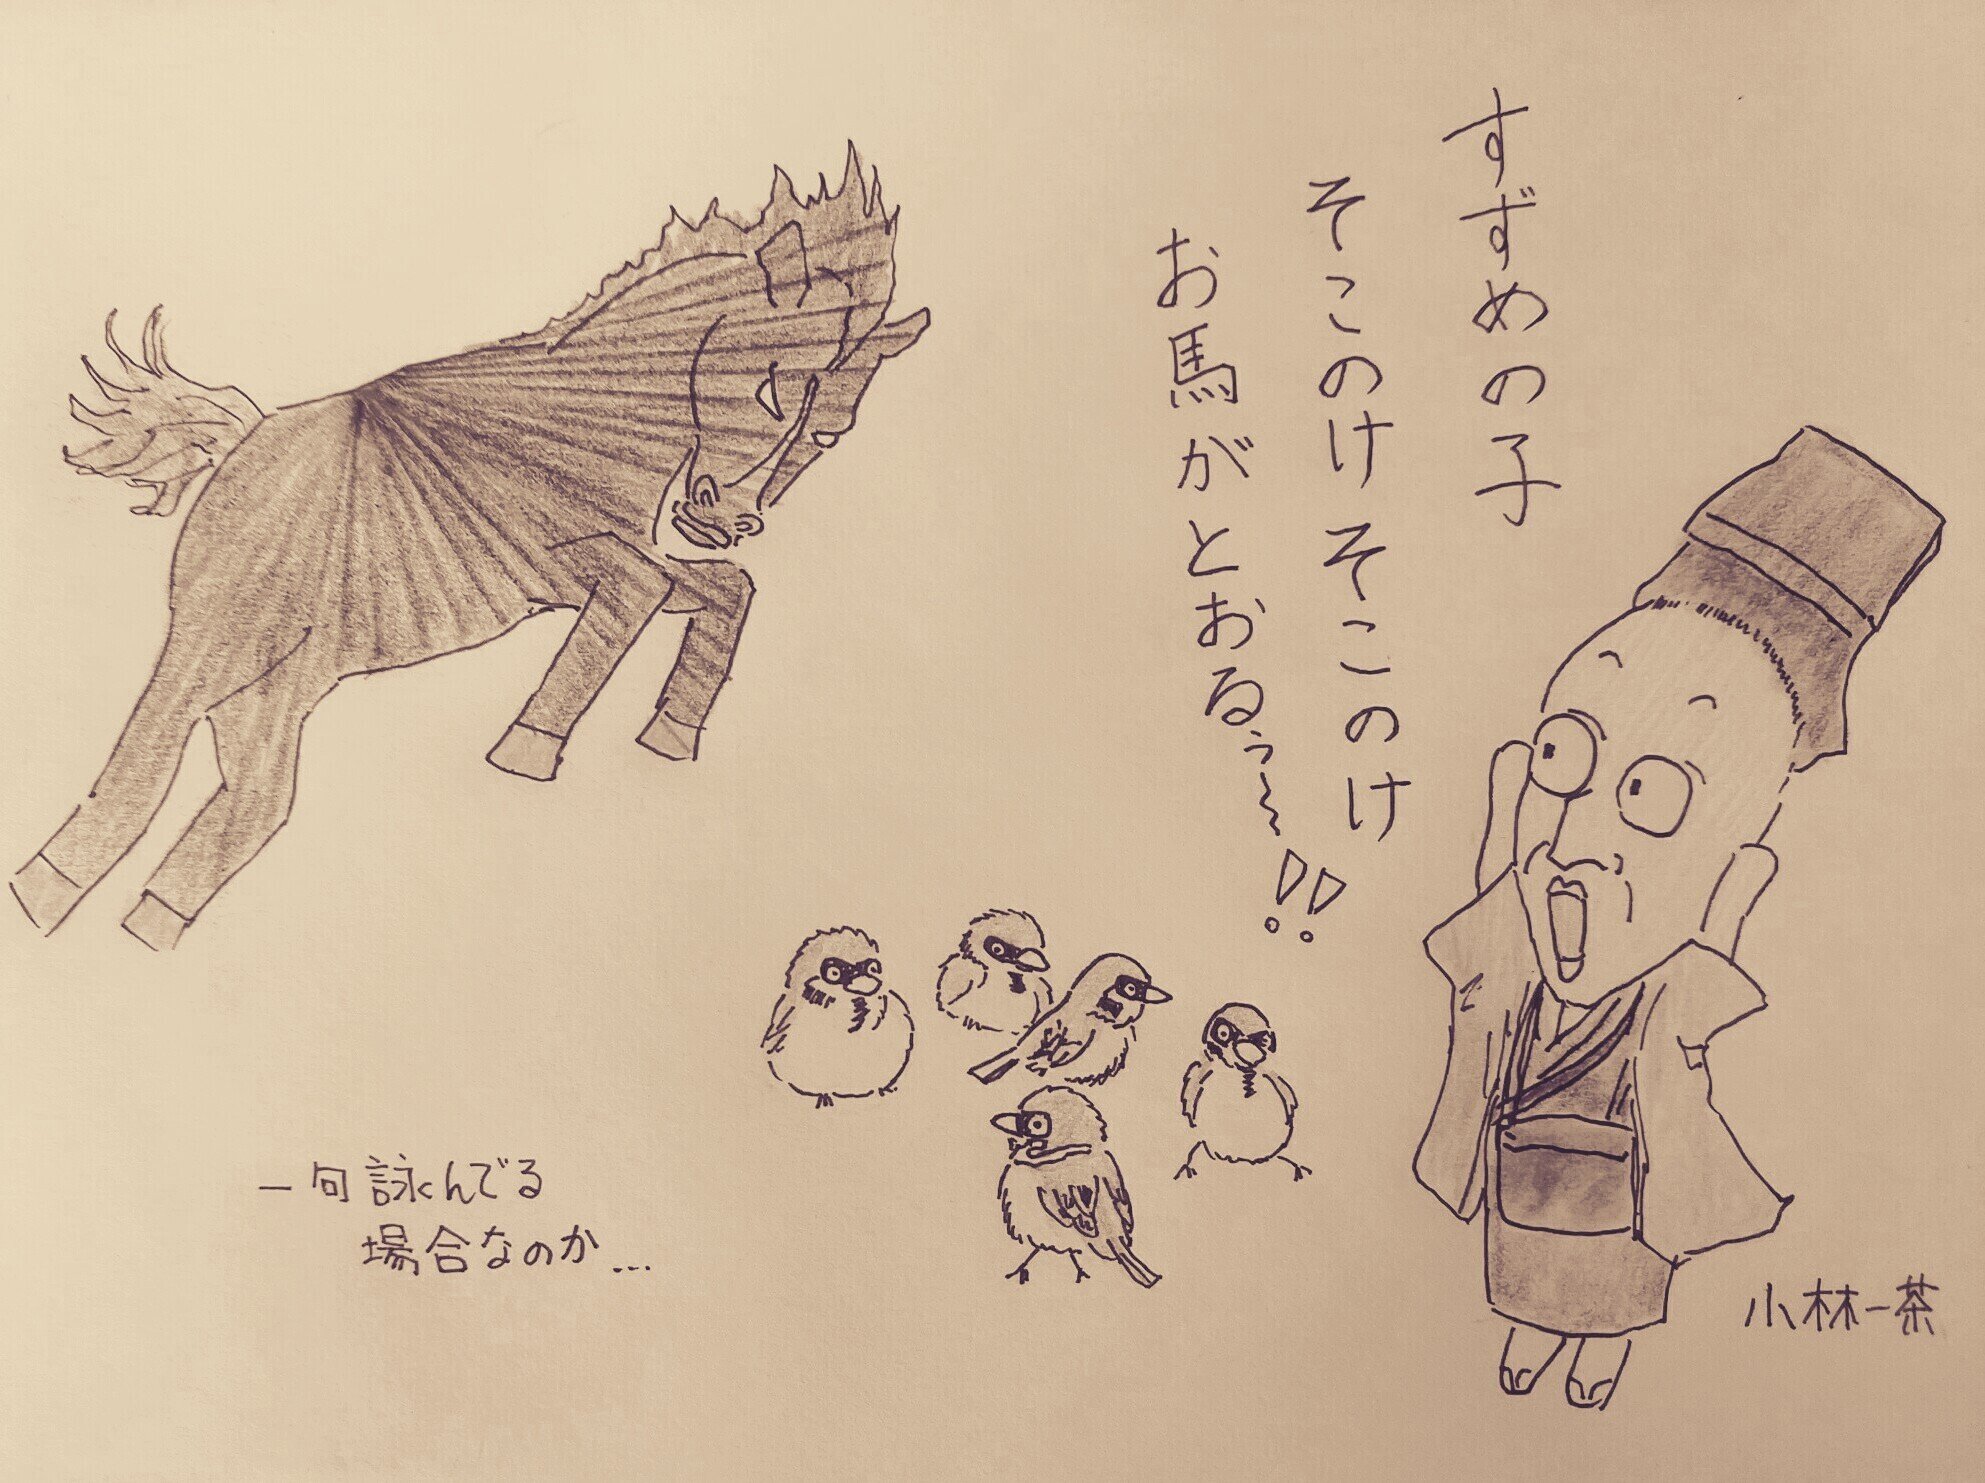 すずめの子
そこのけそこのけ
お馬がとおるぅ〜!!
小林一茶
一句詠んでる
場合なのか…